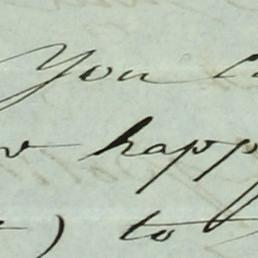 You
happ
) to